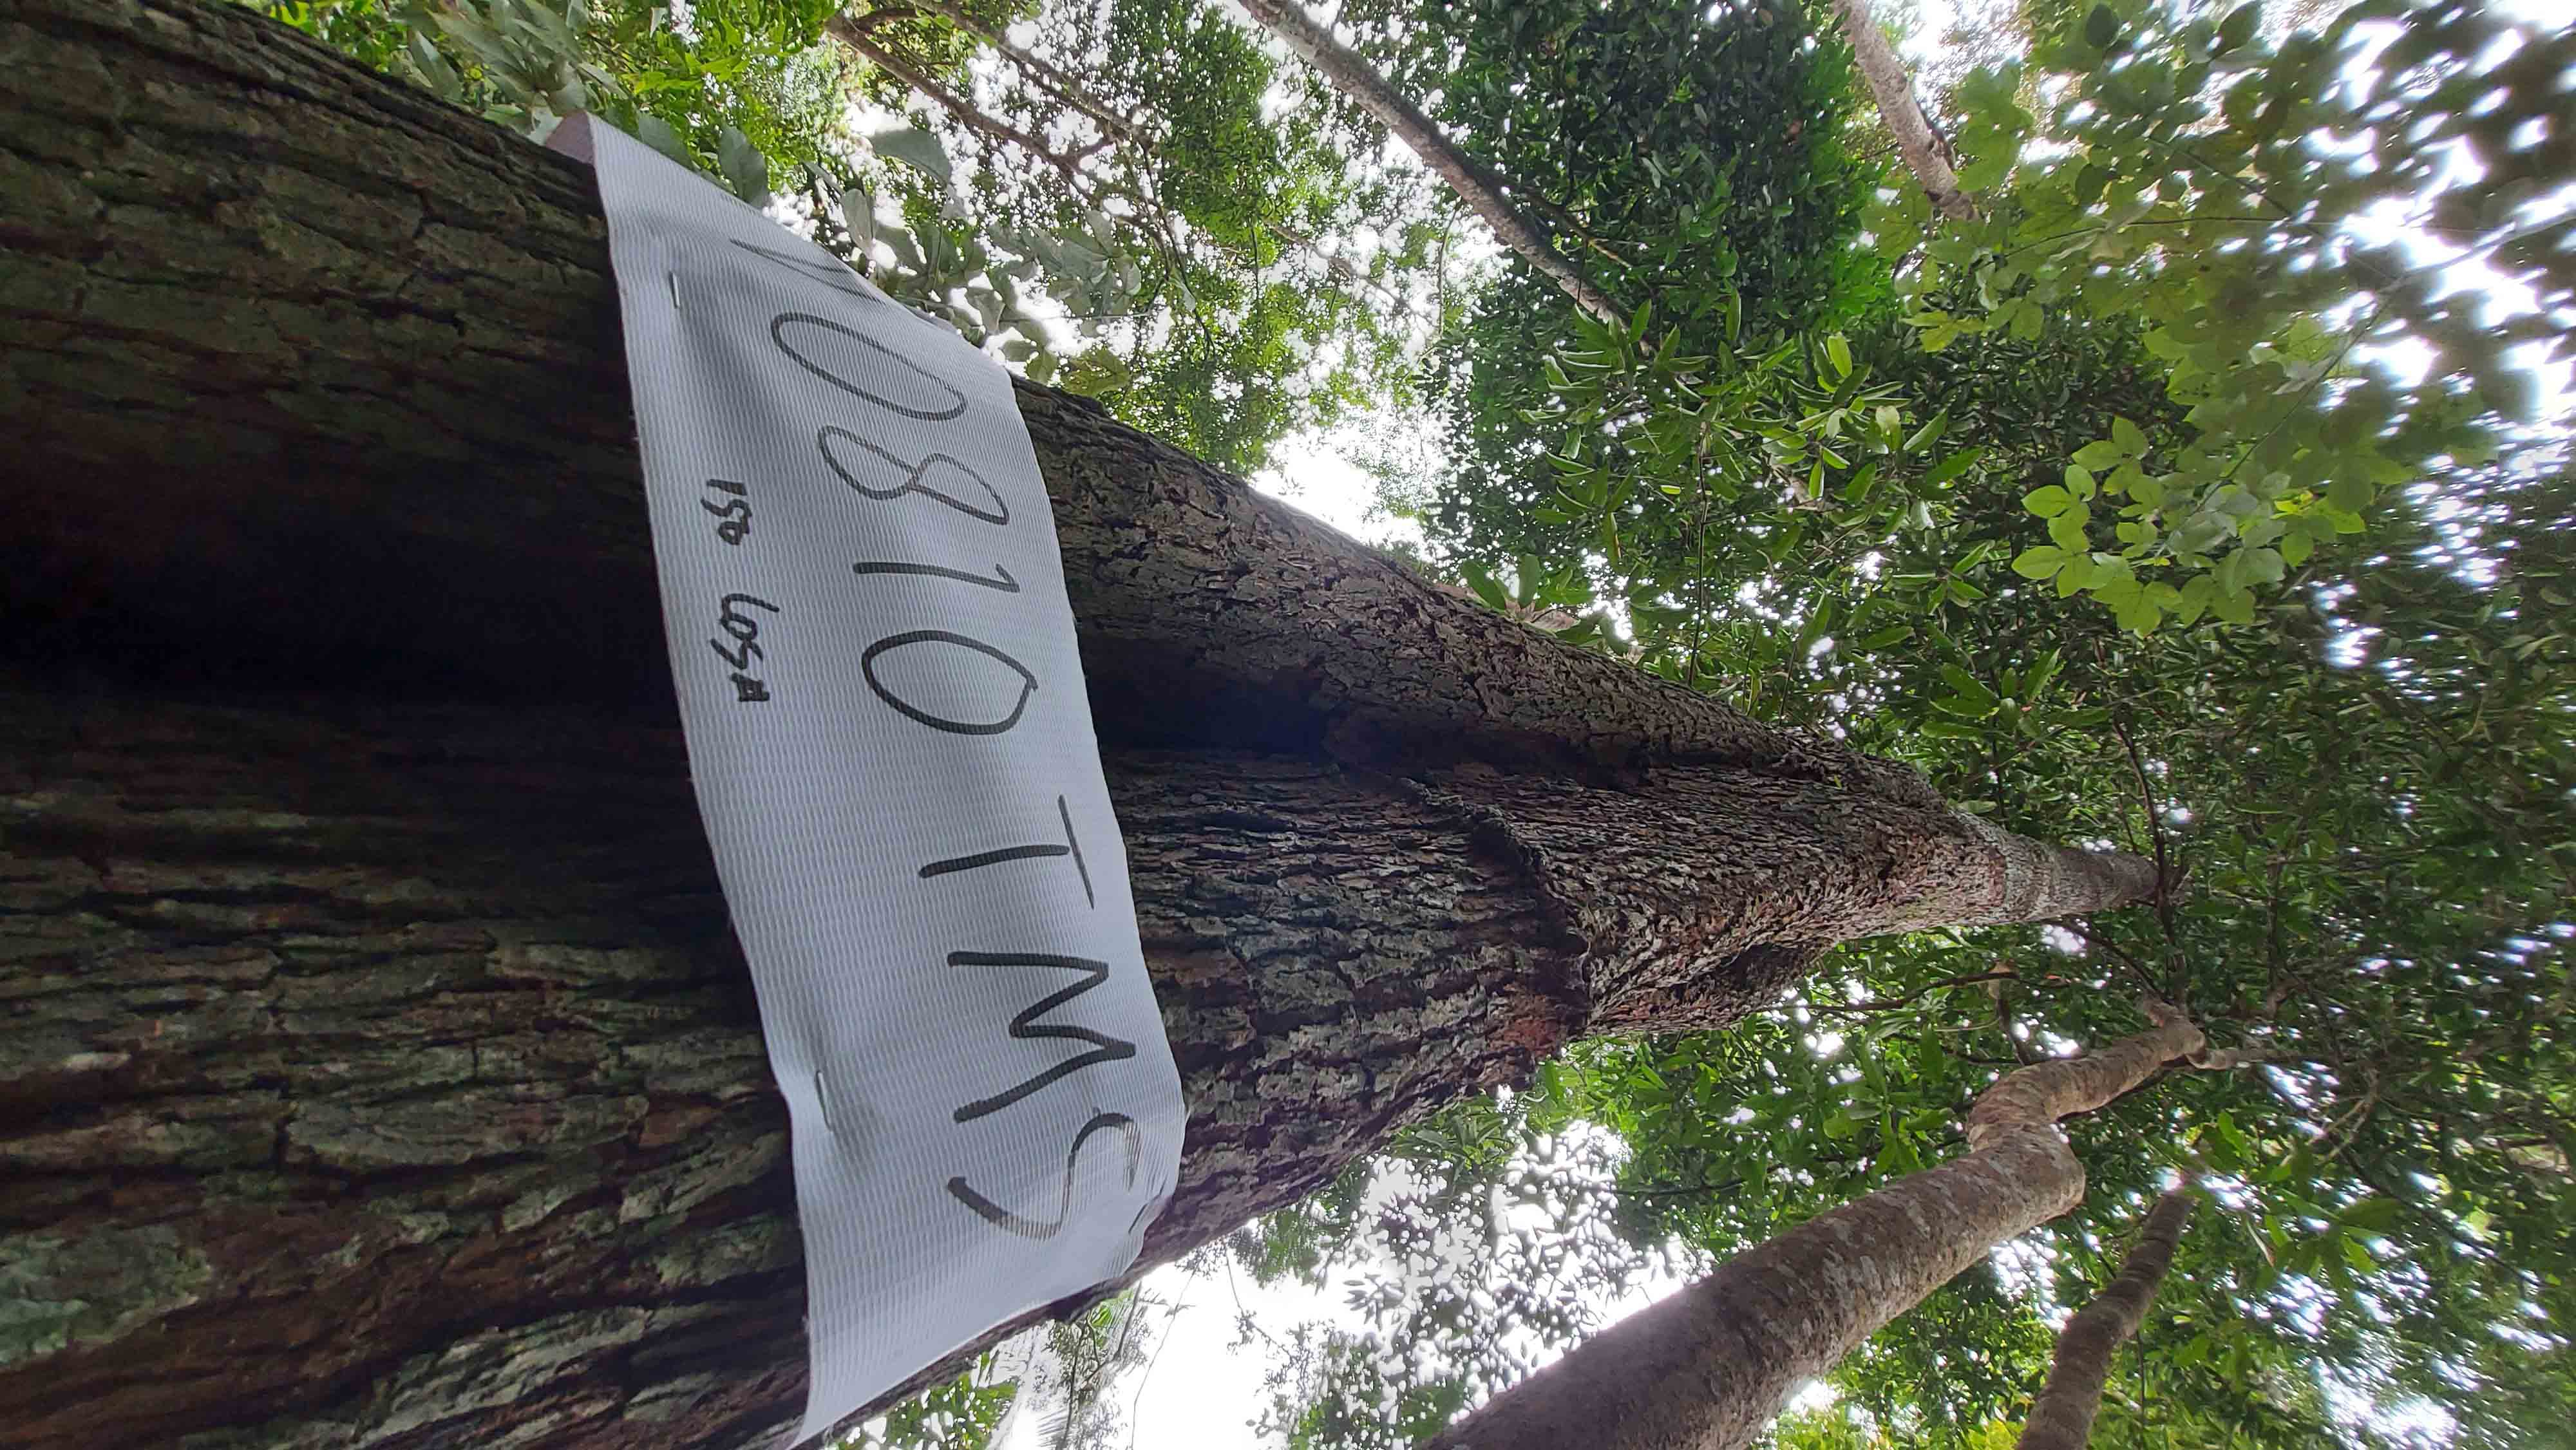 10810 TMS
150 LOSA